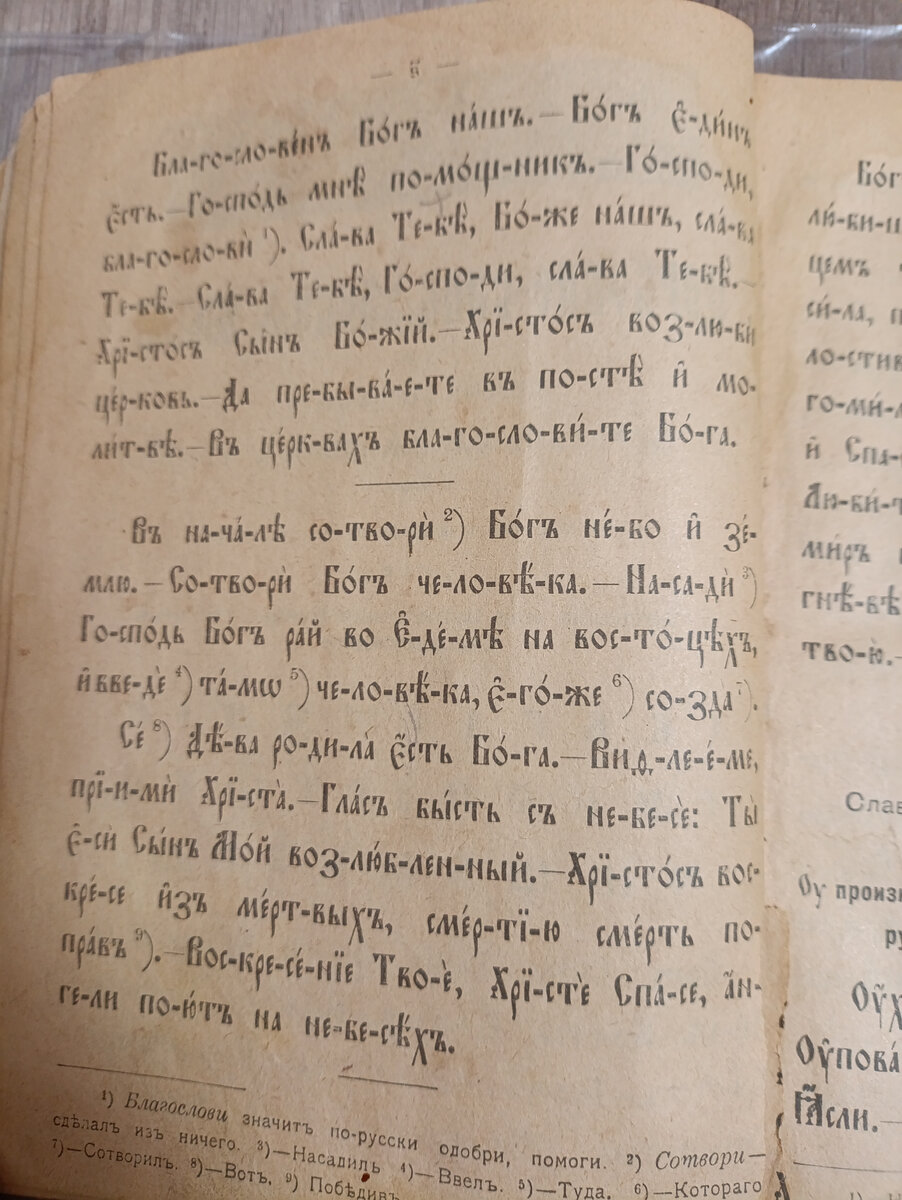 — ѕ҃ —
Бла-го-сло-ве́нъ Бо́гъ на́шъ.—Бо́гъ є҆-ди́нъ
є҆́сть.—Го-спо́дь мнѣ̀ по-мо́щ-никъ.—Го́-спо-ди,
бла-го-сло-вѝ ¹). Сла́-ва Те-бѣ̀, Бо́-же на́шъ, сла́-ва
Те-бѣ̀.—Сла́-ва Те-бѣ̀, Го́-спо-ди, сла́-ва Те-бѣ̀.—
Хрї-сто́съ Сы́нъ Бо́-жїй.—Хрї-сто́съ воз-лю-бѝ
це́р-ковь.—Да пре-бы-ва́-е-те въ по-стѣ̀ и҆ мо-
ли́т-вѣ.—Въ це́рк-вахъ бла-го-сло-ви́-те Бо́-га.
Въ на-ча́-лѣ со-тво-рѝ ²) Бо́гъ не́-бо и҆ зе́-
млю.—Со-тво-рѝ Бо́гъ че-ло-вѣ́-ка.—На-са-дѝ ³)
Го-спо́дь Бо́гъ ра́й во Є҆-де́-мѣ на вос-то́-цѣхъ,
и҆ вве-дѐ ⁴) та́-мѡ ⁵) че-ло-вѣ́-ка, є҆-го́-же ⁶) со-зда̀ ⁷).
Сѐ ⁸) Дѣ́-ва ро-ди-ла́ є҆́сть Бо́-га.—Виѳ-ле-е́-ме,
прї-и-мѝ Хрї-ста̀.—Гла́съ бы́сть съ не-бе-сѐ: Ты̀
є҆-сѝ Сы́нъ Мо́й воз-лю́б-лен-ный.—Хрї-сто́съ вос-
кре́-се и҆зъ ме́рт-выхъ, сме́р-тї-ю сме́рть по-
пра́въ ⁹).—Вос-кре-се́-нїе Тво-ѐ, Хрї-стѐ Спа́-се, а҆́н-
ге-ли по-ю́тъ на не-бе-сѣ́хъ.
¹) Благослови значитъ по-русски одобри, помоги. ²) Сотвори—
сдѣлалъ изъ ничего. ³)—Насадилъ ⁴)—Ввелъ. ⁵)—Туда. ⁶)—Котораго
⁷)—Сотворилъ. ⁸)—Вотъ. ⁹) Побѣдив
Бо́г
ли́-би-
цемъ
си́-ла,
ло-стив
го-ми́-
и҆ Спа-
Лю-би́-т
ми́ръ
гнѣ́-вѣ
тво-ю̀.—
Слав
Оу произн
ру
Оу҆х
Оу҆пова́
Ꙗ҆́сли.—